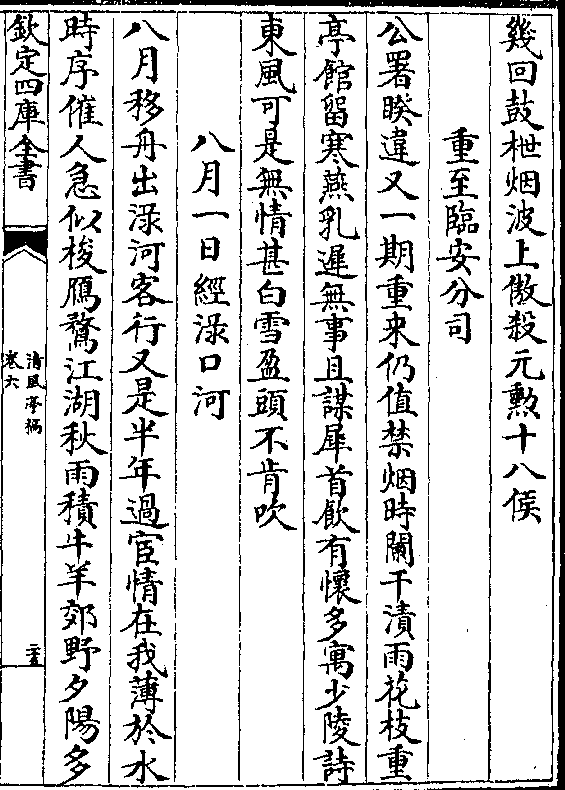 幾回鼓枻烟波上傲殺元勲十八侯
重至臨安分司
公署暌違又一期重來仍值禁烟時闌干漬雨花枝重
亭館留寒燕乳遲無事且謀犀首飲有懷多寓少陵詩
東風可是無情甚白雪盈頭不肯吹
八月一日經渌口河
八月移舟出渌河客行又是半年過宦情在我薄於水
時序催人急似梭鴈鶩江湖秋雨積牛羊郊野夕陽多
欽定四庫全書
清風亭稿
卷六
二十五